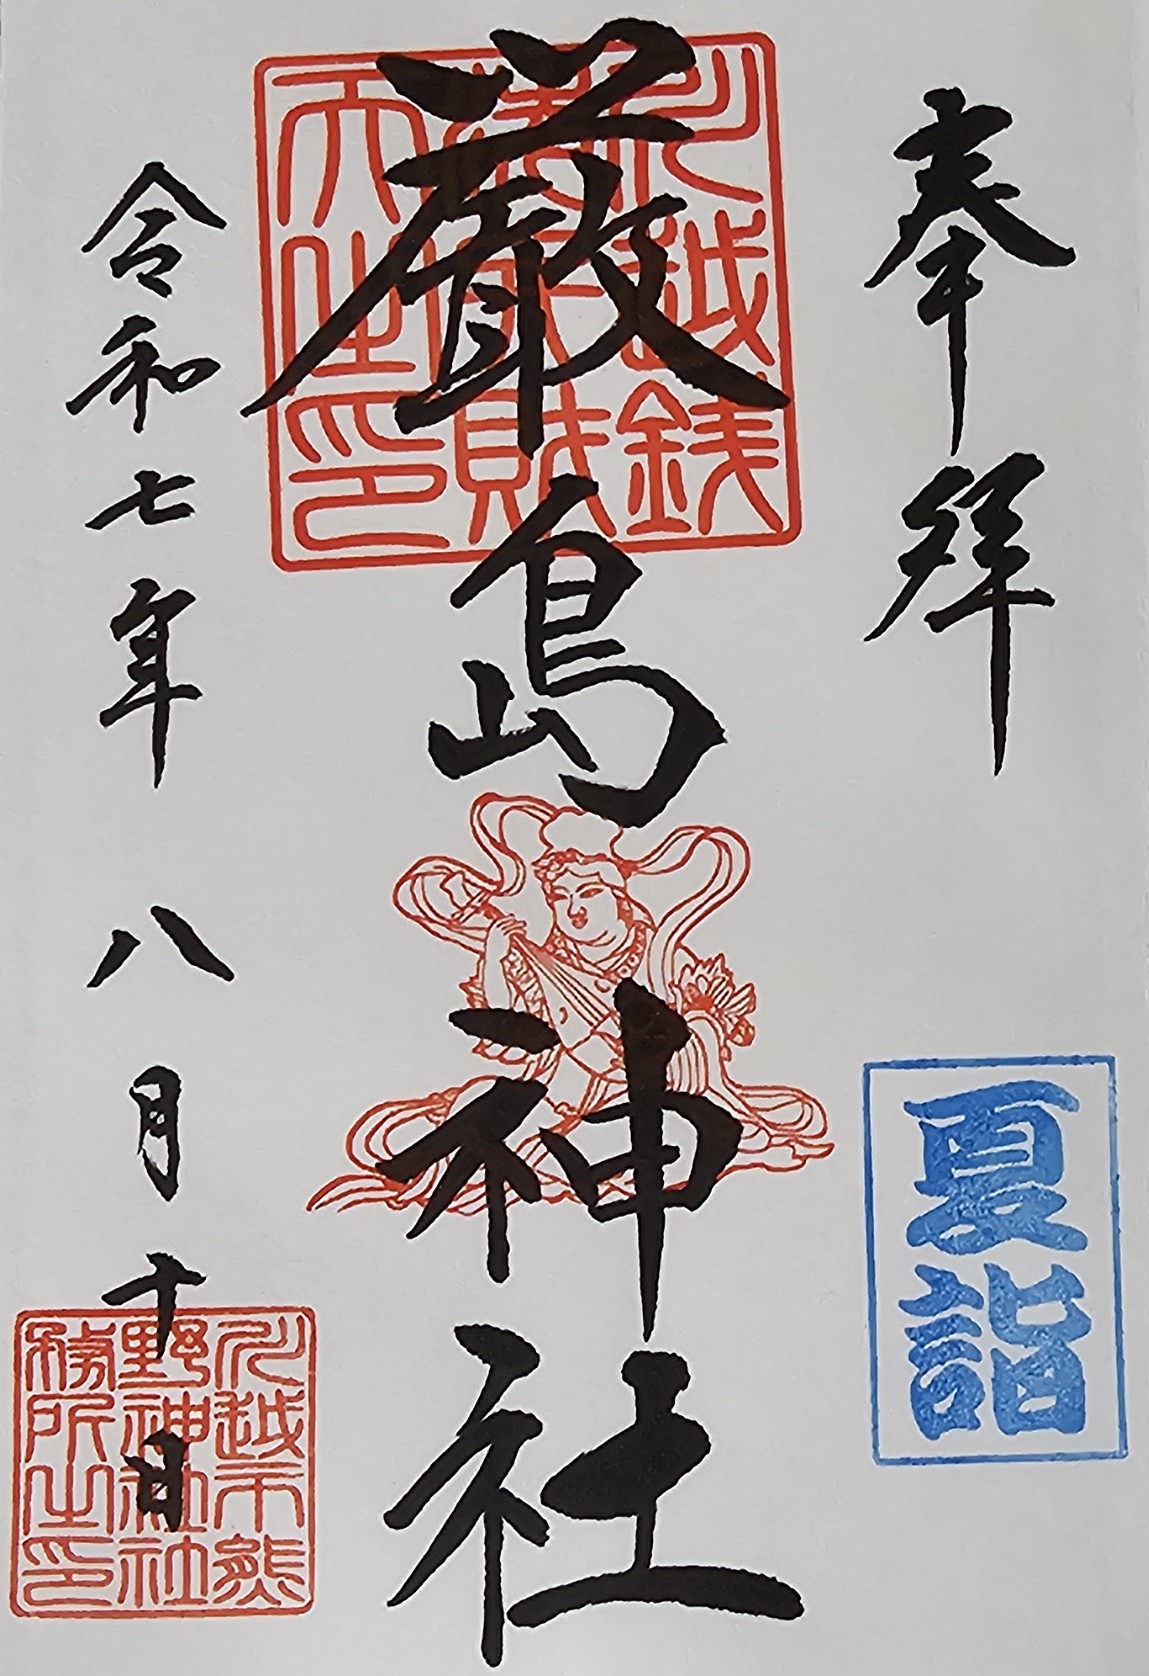 奉拝
夏詣
川越銭
洗弁財
天之印
厳島神社
令和七年八月十日
川越市熊
野神社社
務所之印